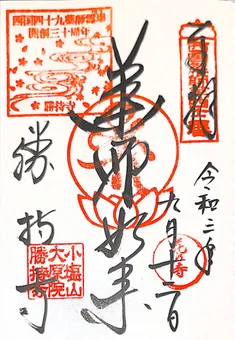 奉拝
令和三年
薬師如来
花の寺
西国四十九薬師霊場
開創三十周年
勝持寺
勝持寺
小塩山
大原院
勝持寺